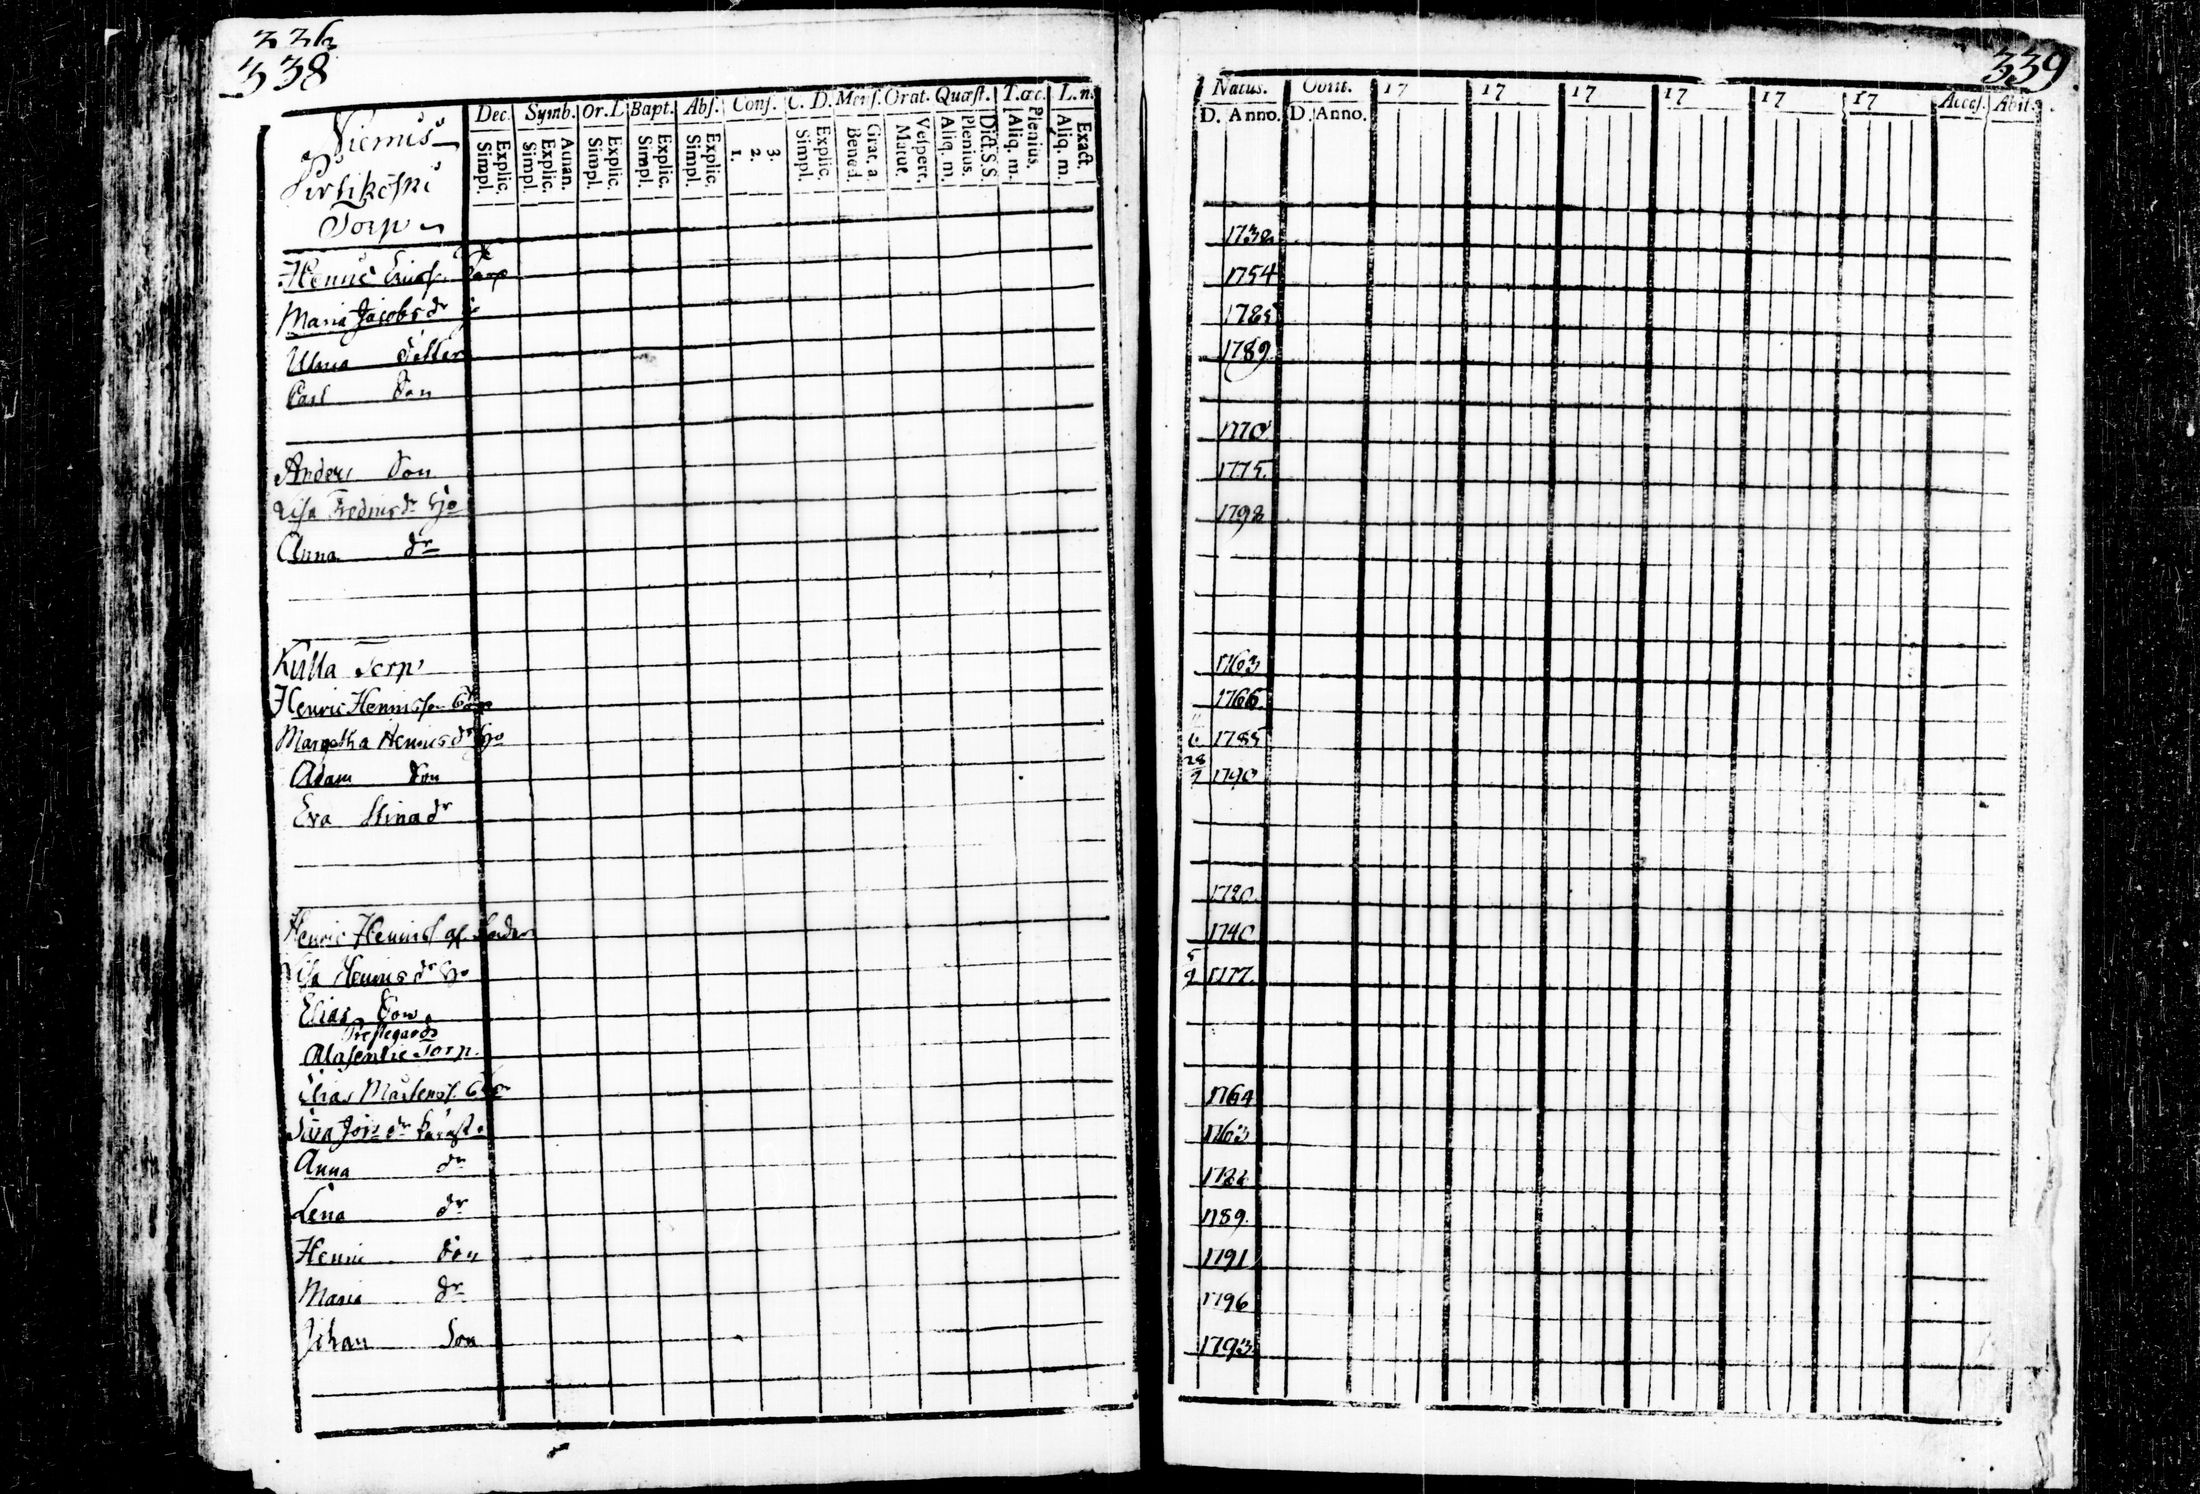 336
338
Dec. Symb. Or. L. Bapt. Abs. Conf. C. D. Mens. Orat. Quæst. T. œc. L. n.
Explic. Simpl. Athan. Explic. Simpl. Explic. Simpl. Explic. Simpl. Explic. Simpl. 3. 2. 1. Explic. Simpl. Grat. a. Bened. Vespert. Matut. Dict. S.S. Plenius. Aliq. m. Plenius. Aliq. m. Exact. Aliq. m.
Niemis
Torp
Henric Ericss.
Maria Jacobs dr
Ulrica Dotter
Carl Son
Anders Son
Lisa Fredrics dr Ho
Anna dr
Kulla Torp
Henric Henricss.
Margetha Henrics dr Ho
Adam Son
Eva Stina dr
Henric Henricss.
Lisa Henrics dr Ho
Elias Son
Prestegårds
Alasenkie Torp.
Elias Mårtenss.
Anna dr
Lena dr
Henric Son
Maria dr
Johan Son
339
Natus. Obiit. 17 17 17 17 17 17 Acces. Abit.
D. Anno. D. Anno.
1738
1754
1785
1789
1770
1775.
1798
1763
1766.
11 6 1785
28 9 1790
1720.
1740
5 9 1777.
1764
1763
1786
1789.
1791
1796
1793